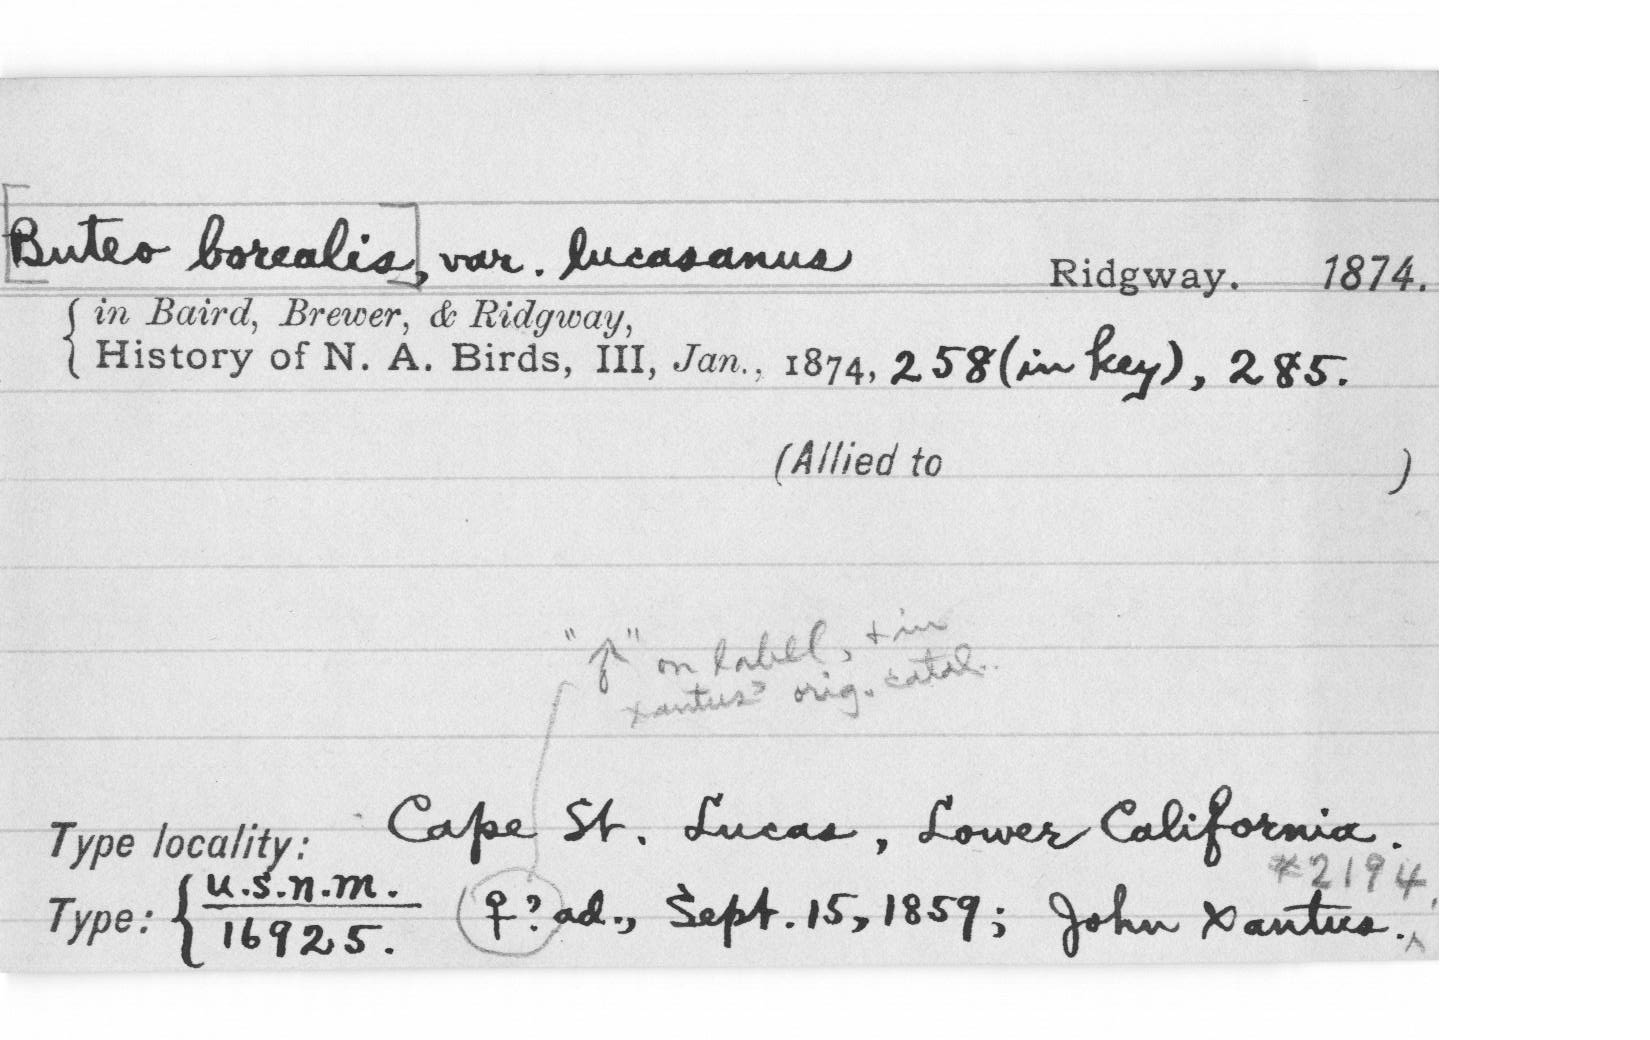 [Buteo borealis], var. lucasanus Ridgway. 1874.
{ in Baird, Brewer, & Ridgway,
History of N. A. Birds, III, Jan., 1874, 258 (in key), 285.
(Allied to )
"♂" on label, & in
Xantus' orig. catal.
Type locality: Cape St. Lucas, Lower California.
*2194,
Type: { U.S.N.M. ♀? ad., Sept. 15, 1859; John Xantus. ^
16925.